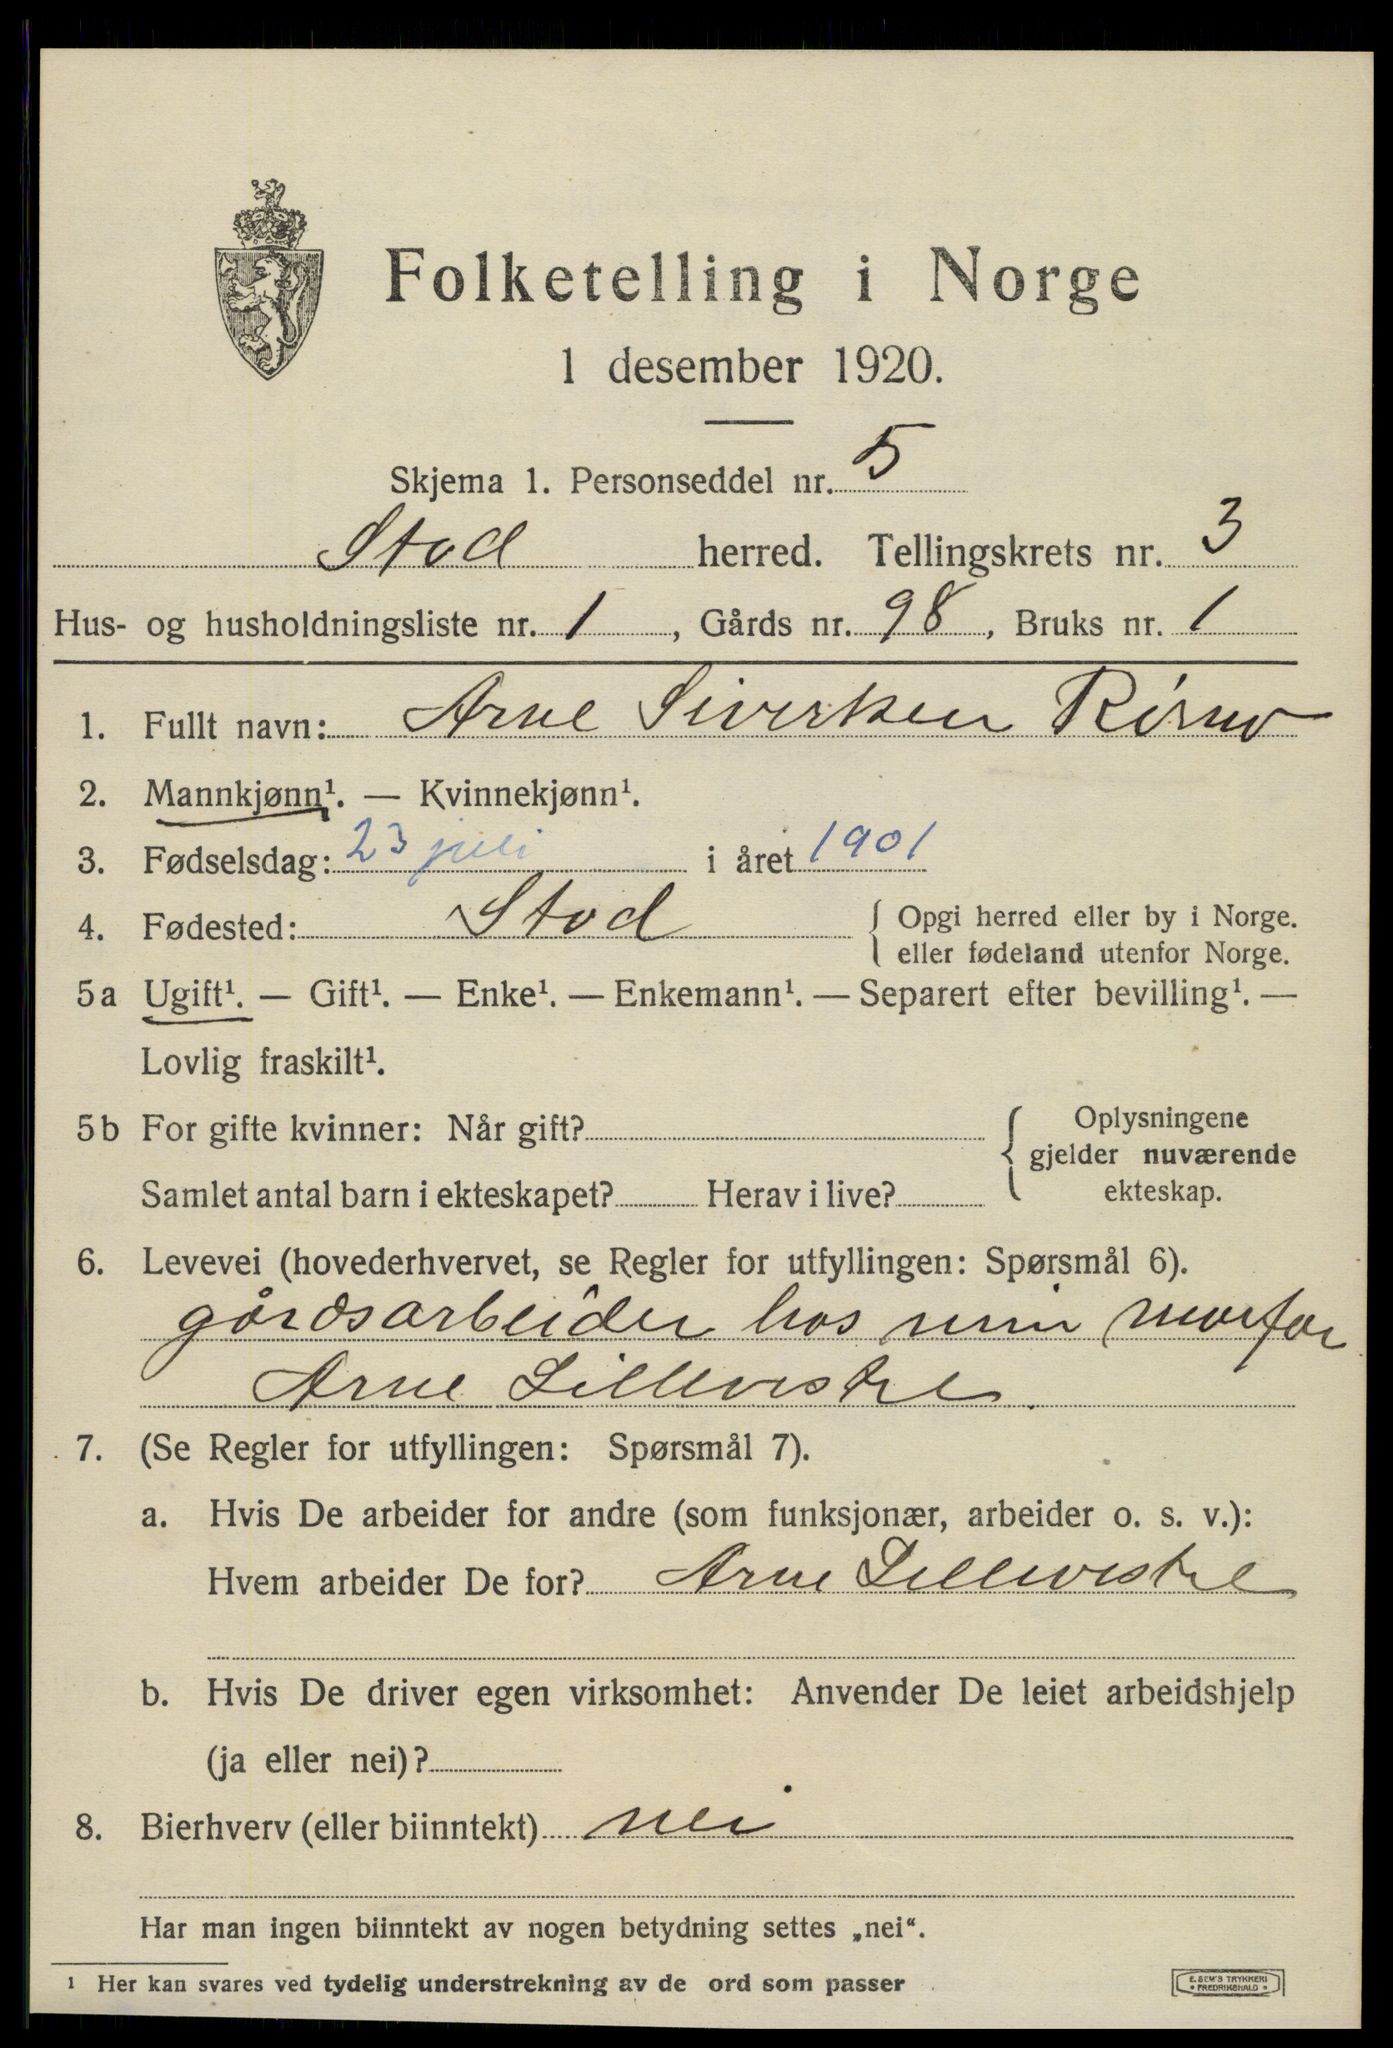 Folketelling i Norge
1 desember 1920.
Skjema 1. Personseddel nr. 5
Stod herred. Tellingskrets nr. 3
Hus- og husholdningsliste nr. 1, Gårds nr. 98, Bruks nr. 1
1. Fullt navn: Arne Siversen
2. Mannkjønn¹. — Kvinnekjønn¹.
3. Fødselsdag: 23 juli i året 1901
4. Fødested: Stod { Opgi herred eller by i Norge.
eller fødeland utenfor Norge.
5a Ugift¹. — Gift¹. — Enke¹. — Enkemann¹. — Separert efter bevilling¹. —
Lovlig fraskilt¹.
5b For gifte kvinner: Når gift?
Samlet antal barn i ekteskapet? Herav i live?
Oplysningene
gjelder nuværende
ekteskap.
6. Levevei (hovederhvervet, se Regler for utfyllingen: Spørsmål 6).
gårdsarbeider hos min morfar
Arne Lillevestre.
7. (Se Regler for utfyllingen: Spørsmål 7).
a. Hvis De arbeider for andre (som funksjonær, arbeider o. s. v.):
Hvem arbeider De for? Arne Lillevestre
b. Hvis De driver egen virksomhet: Anvender De leiet arbeidshjelp
(ja eller nei)?
8. Bierhverv (eller biinntekt) nei
Har man ingen biinntekt av nogen betydning settes „nei“.
¹ Her kan svares ved tydelig understrekning av de ord som passer
E. SEM'S TRYKKERI
* FREDRIKSHALD *